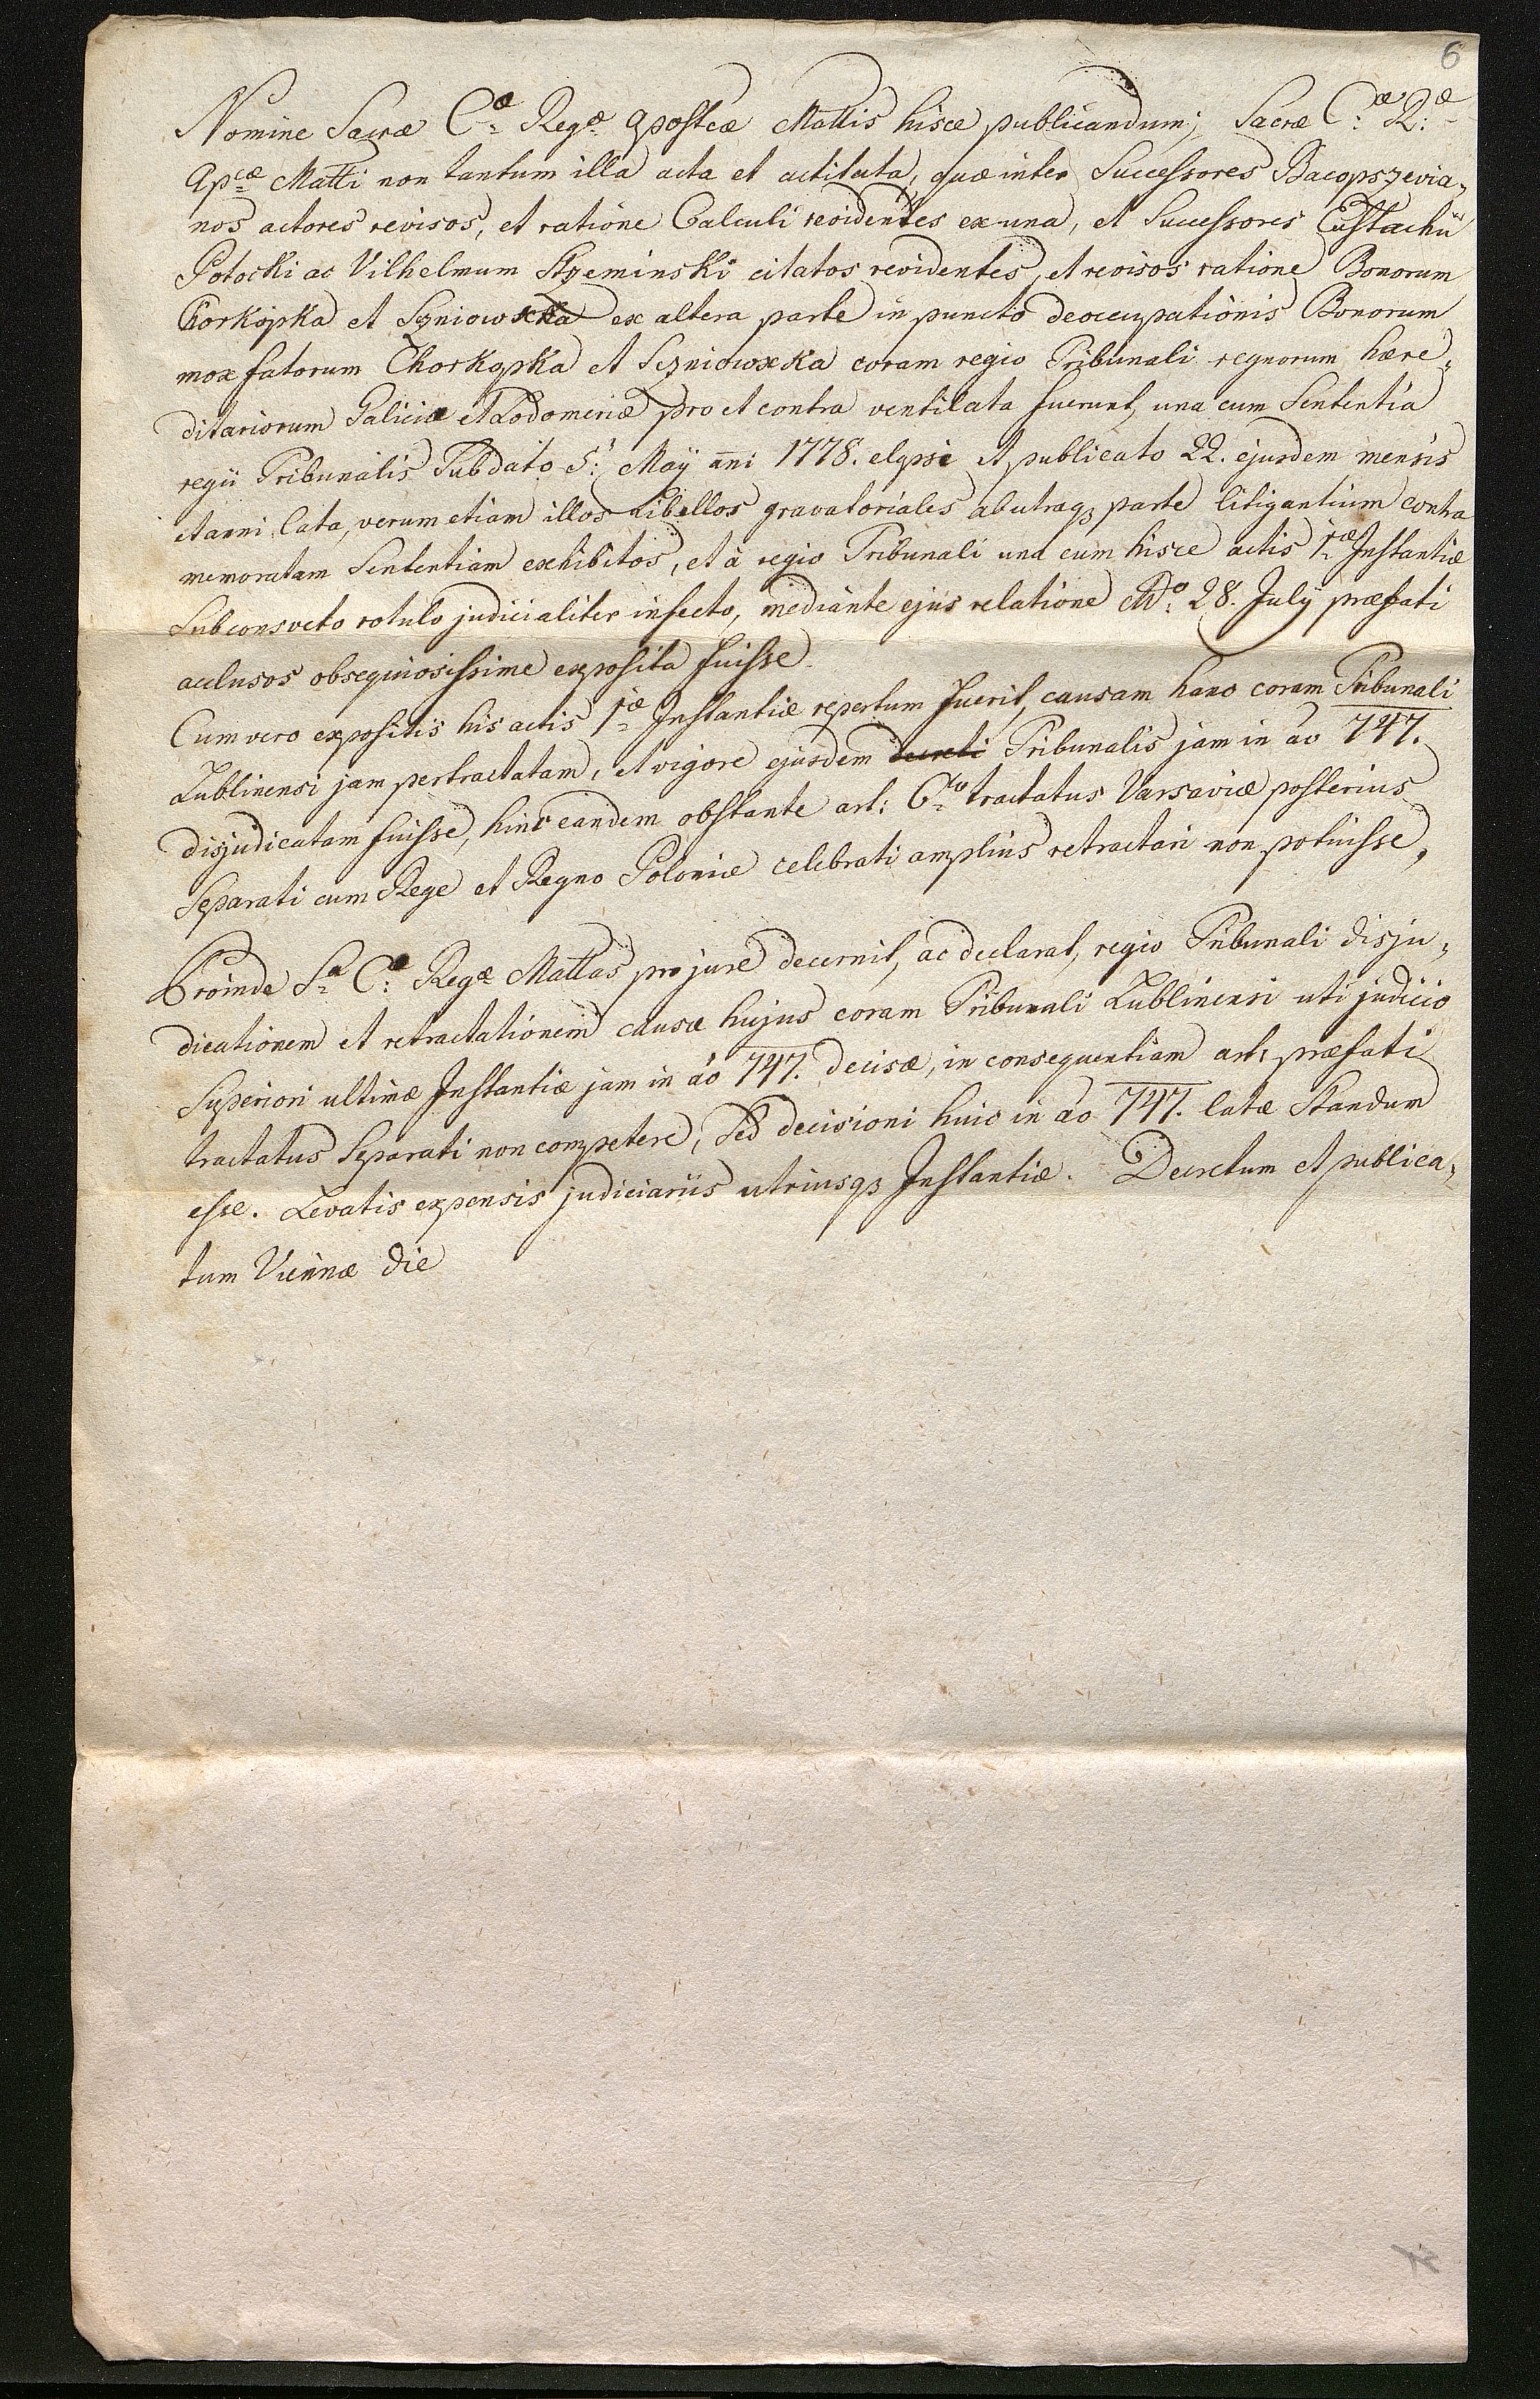 6
Nomine Sacræ C:æ Regæ aposteæ Mattis hisce publicandum; Sacræ C:æ R:æ
Apcæ Matti non tantum illa acta et actitata, quæ inter Successores Bacopszevia,
nos actores revisos, et ratione Calculi revidentes ex una, et Successores Eustachii
Potocki ac Vilhelmum Szeminski citatos revidentes, et revisos ratione Bonorum
Chorkopka et Szniowska ex altera parte in puncto deoccupationis Bonorum
mox fatorum Chorkopka et Sezniowxka coram regio Tribunali regnorum hære,
ditariorum Galiciæ et Lodomeriæ pro et contra ventilata fuerunt, una cum Sententia
regii Tribunalis Sub dato 5: Maÿ ani 1778. elapsi et publicato 22. ejusdem mensis
et anni lata, verum etiam illos Libellos gravatoriales ab utraqz parte litigantium contra
memoratam Sententiam exhibitos, et à regio Tribunali una cum hisce actis 1æ Instantiæ
Sub consveto rotulo judicialiter insecto, mediante ejus relatione ddo: 28. Julÿ præfati
acclusos obsequiosissime exposita fuisse.
Cum vero expositis his actis 1æ Instantiæ repertum fuerit, causam hanc coram Tribunali
Lublinensi jam pertractatam, et vigore ejusdem decreti Tribunalis jam in ao 747.
disjudicatam fuisse, hinc eandem obstante art: 6to tractatus Varsaviæ posterius
Separati cum Rege et Regno Poloniæ celebrati amplius retractari non potuisse,
Proinde Sa C:æ Regæ Mattas pro jure decernit, ac declarat, regio Tribunali disju,
dicationem et retractationem causæ hujus coram Tribunali Lublinensi uti judicio
Superiori ultimæ Instantiæ jam in ao 747. decisæ, in consequentiam art: præfati
tractatus Separati non competere, Sed decisioni huic in ao 747. latæ Standum
esse. Levatis expensis judiciariis utriusqz Instantiæ. Decretum et publica,
tum Viennæ die